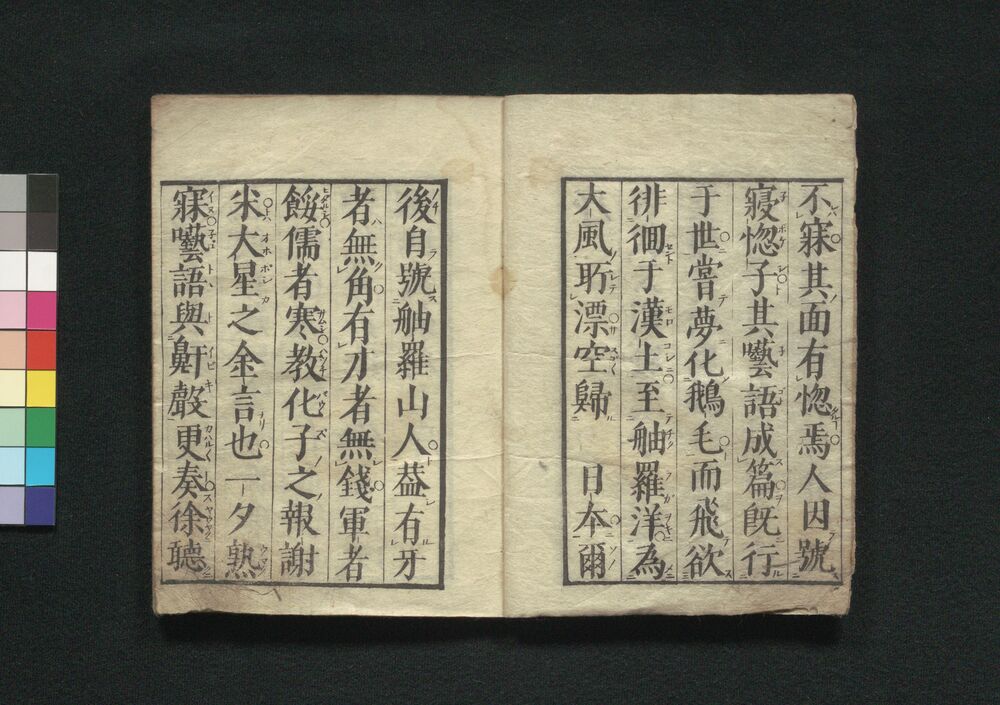 不寐其面有惚焉人因號
寢惚子其囈語成篇既行
于世嘗夢化鵝毛而飛欲
徘徊于漢土至舳羅洋為
大風所漂空歸　日本爾
後自號舳羅山人葢有牙
者無角有才者無錢軍者
餒儒者寒教化子之報謝
米大星之金言也一夕熟
寐囈語與鼾聲更奏徐聴